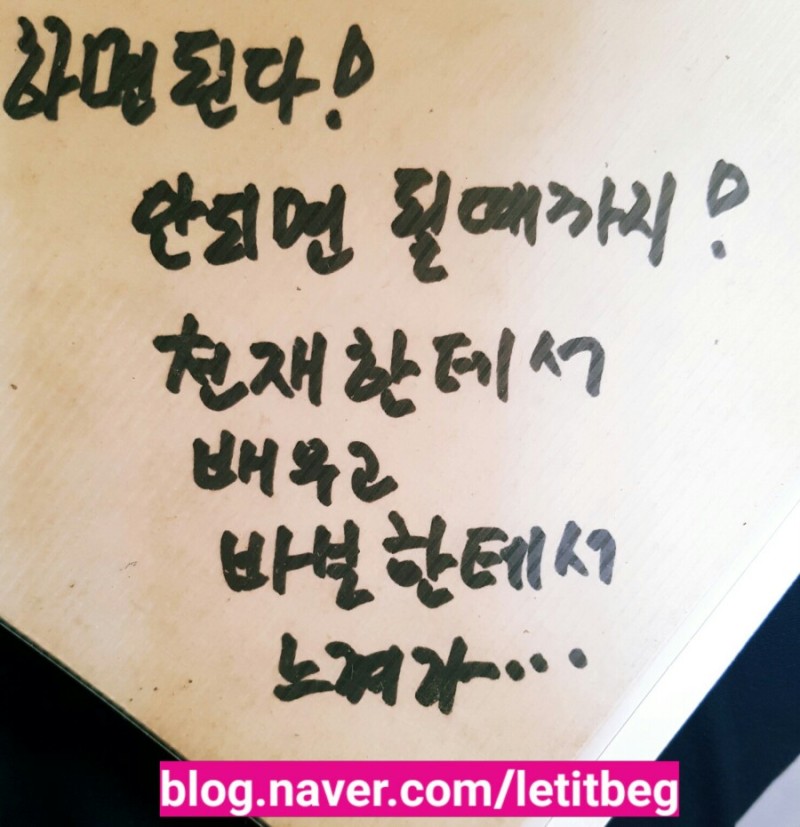 하면된다!
안되면 될때까지!
천재한테서
배우고
blog.naver.com/letitbeg